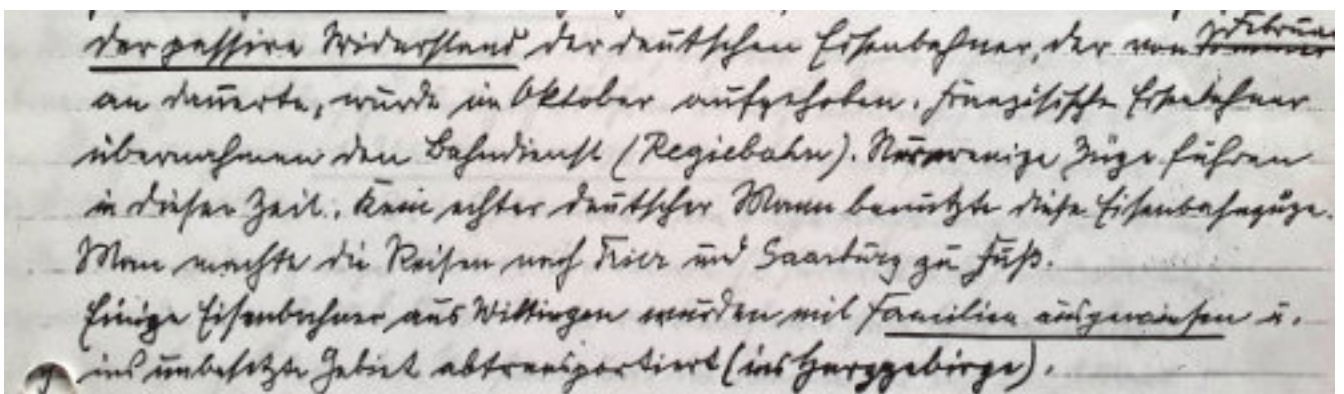 der passive Widerstand der deutschen Eisenbahner, der von Februar
an dauerte, wurde im Oktober aufgehoben. Französische Eisenbahner
übernahmen den Bahndienst (Regiebahn). Nur wenige Züge fuhren
in dieser Zeit. Kein echter deutscher Mann benutzte diese Eisenbahnzüge.
Man machte die Reisen nach Trier und Saarburg zu Fuß.
Einige Eisenbahner aus Wiltingen wurden mit Familien ausgewiesen u.
ins unbesetzte Gebiet abtransportiert (ins Harzgebirge).